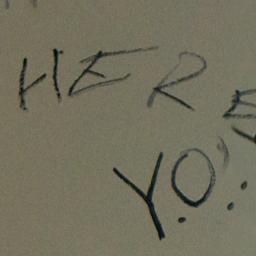 HERE
YO